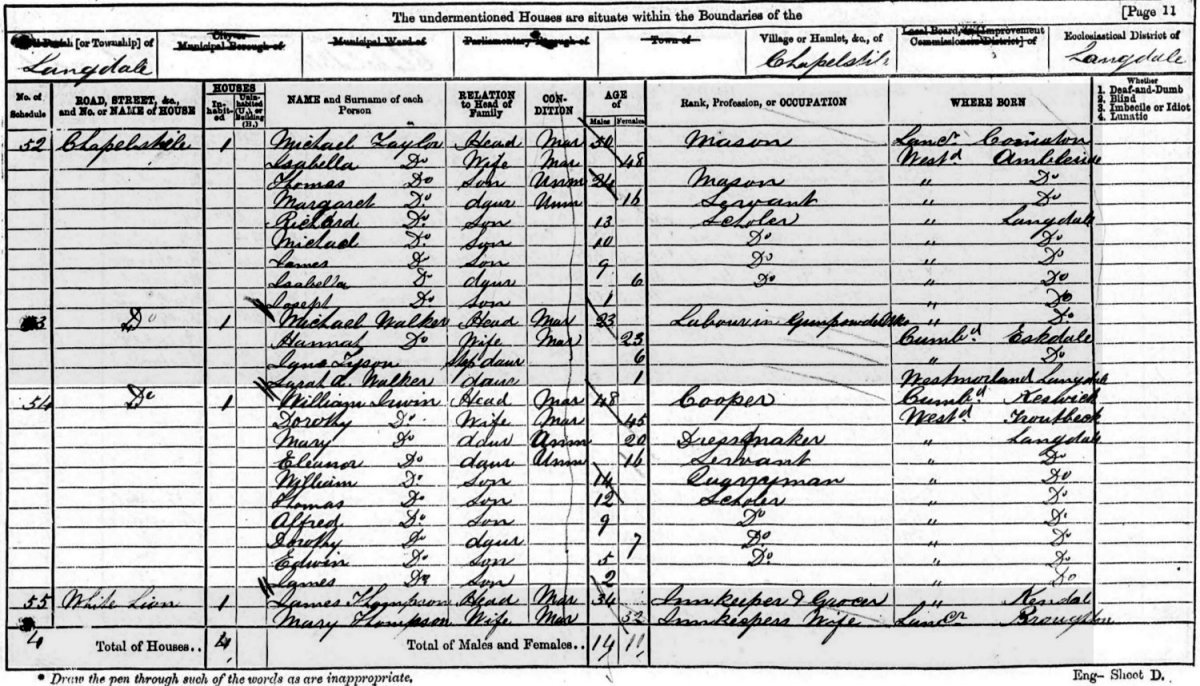 The undermentioned Houses are situate within the Boundaries of the [Page 11
Parish [or Township] of City or Municipal Borough of Municipal Ward of Parliamentary Borough of Town of Village or Hamlet, &c., of Local Board, or [Improvement Commissioners District] of Ecclesiastical District of
Langdale Chapelstile Langdale
No. of Schedule ROAD, STREET, &c., and No. or NAME of HOUSE HOUSES In-habited Unin-habited (U.), or Building (B.) NAME and Surname of each Person RELATION to Head of Family CON-DITION AGE of Males Females Rank, Profession, or OCCUPATION WHERE BORN Whether 1. Deaf-and-Dumb 2. Blind 3. Imbecile or Idiot 4. Lunatic
52 Chapelstile 1 Michael Taylor Head Mar 50 Mason Lancr. Coniston
Isabella Do Wife Mar 48 Westd Ambleside
Thomas Do Son Unm 24 Mason " Do
Margaret Do daur Unm 16 Servant " Do
Richard Do Son 13 Scholer " Langdale
Michael Do Son 10 Do " Do
James Do Son 9 Do " Do
Isabella Do daur 6 Do " Do
Joseph Do Son 1 " Do
53 Do 1 Michael Walker Head Mar 23 Labour in Gunpowder Wks " Do
Hannah Do Wife Mar 23 Cumbd. Eskdale
Jane Tyson Step daur 6 " Do
Sarah A. Walker daur 1 Westmorland Langdale
54 Do 1 William Irwin Head Mar 48 Cooper Cumbd. Keswick
Dorothy Do Wife Mar 45 Westd Troutbeck
Mary Do daur Unm 20 Dressmaker " Langdale
Eleanor Do daur Unm 16 Servant " Do
William Do Son 14 Quarryman " Do
Thomas Do Son 12 Scholer " Do
Alfred Do Son 9 Do " Do
Dorothy Do daur 7 Do " Do
Edwin Do Son 5 Do " Do
James Do Son 2 " Do
55 White Lion 1 James Thompson Head Mar 34 Innkeeper & Grocer " Kendal
Mary Thompson Wife Mar 32 Innkeepers Wife Lancr. Broughton
4 Total of Houses.. 4 Total of Males and Females.. 14 11
* Draw the pen through such of the words as are inappropriate. Eng- Sheet D.